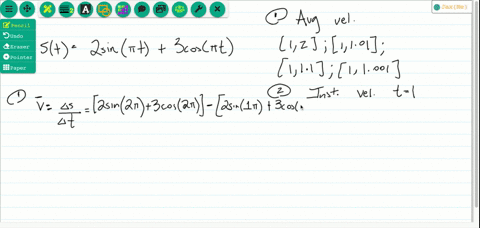 Pencil
Undo
Eraser
Pointer
Paper
S(t) = 2sin(πt) + 3cos(πt)
① Avg vel.
[1,2] ; [1,1.01] ;
[1,1.1] ; [1,1.001]
② Inst. vel. t=1
① v̄ = Δs/Δt = [2sin(2π)+3cos(2π)] - [2sin(1π) + 3cos(